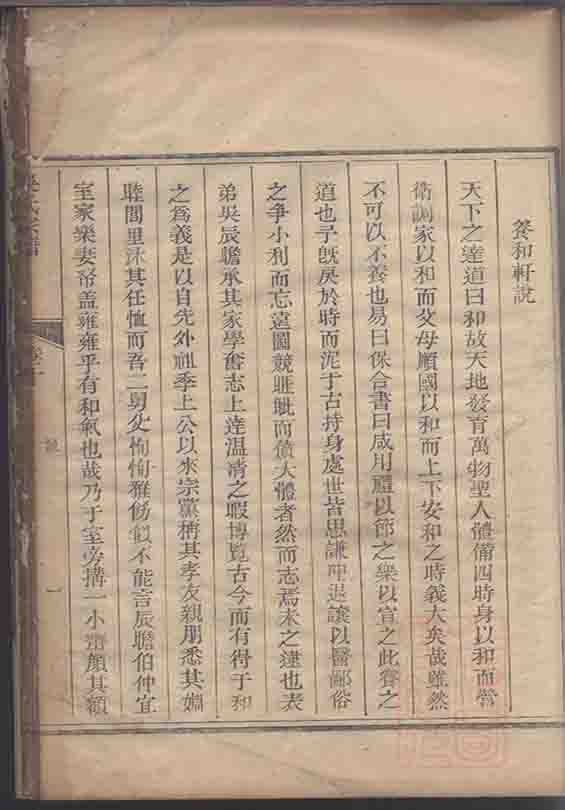 養和軒說
天下之達道曰和故天地發育萬物聖人體備四時身以和而營
衛調家以和而父母順國以和而上下安和之時義大矣哉雖然
不可以不養也易曰保合書曰咸用禮以節之樂以宣之此養之
道也予旣戾於時而泥于古持身處世皆思謙冲退讓以醫鄙俗
之爭小利而忘遠圖競睚眦而僨大體者然而志焉未之逮也表
弟吳辰瞻承其家學奮志上達溫凊之暇博覽古今而有得于和
之爲義是以自先外祖季上公以來宗黨稱其孝友親朋悉其婣
睦閭里沐其任恤而吾二舅父恂恂雅飭似不能言辰瞻伯仲宜
室家樂妻帑盖雍雍乎有和氣也哉乃于室旁搆一小齋顏其額
吳氏宗譜
說
一